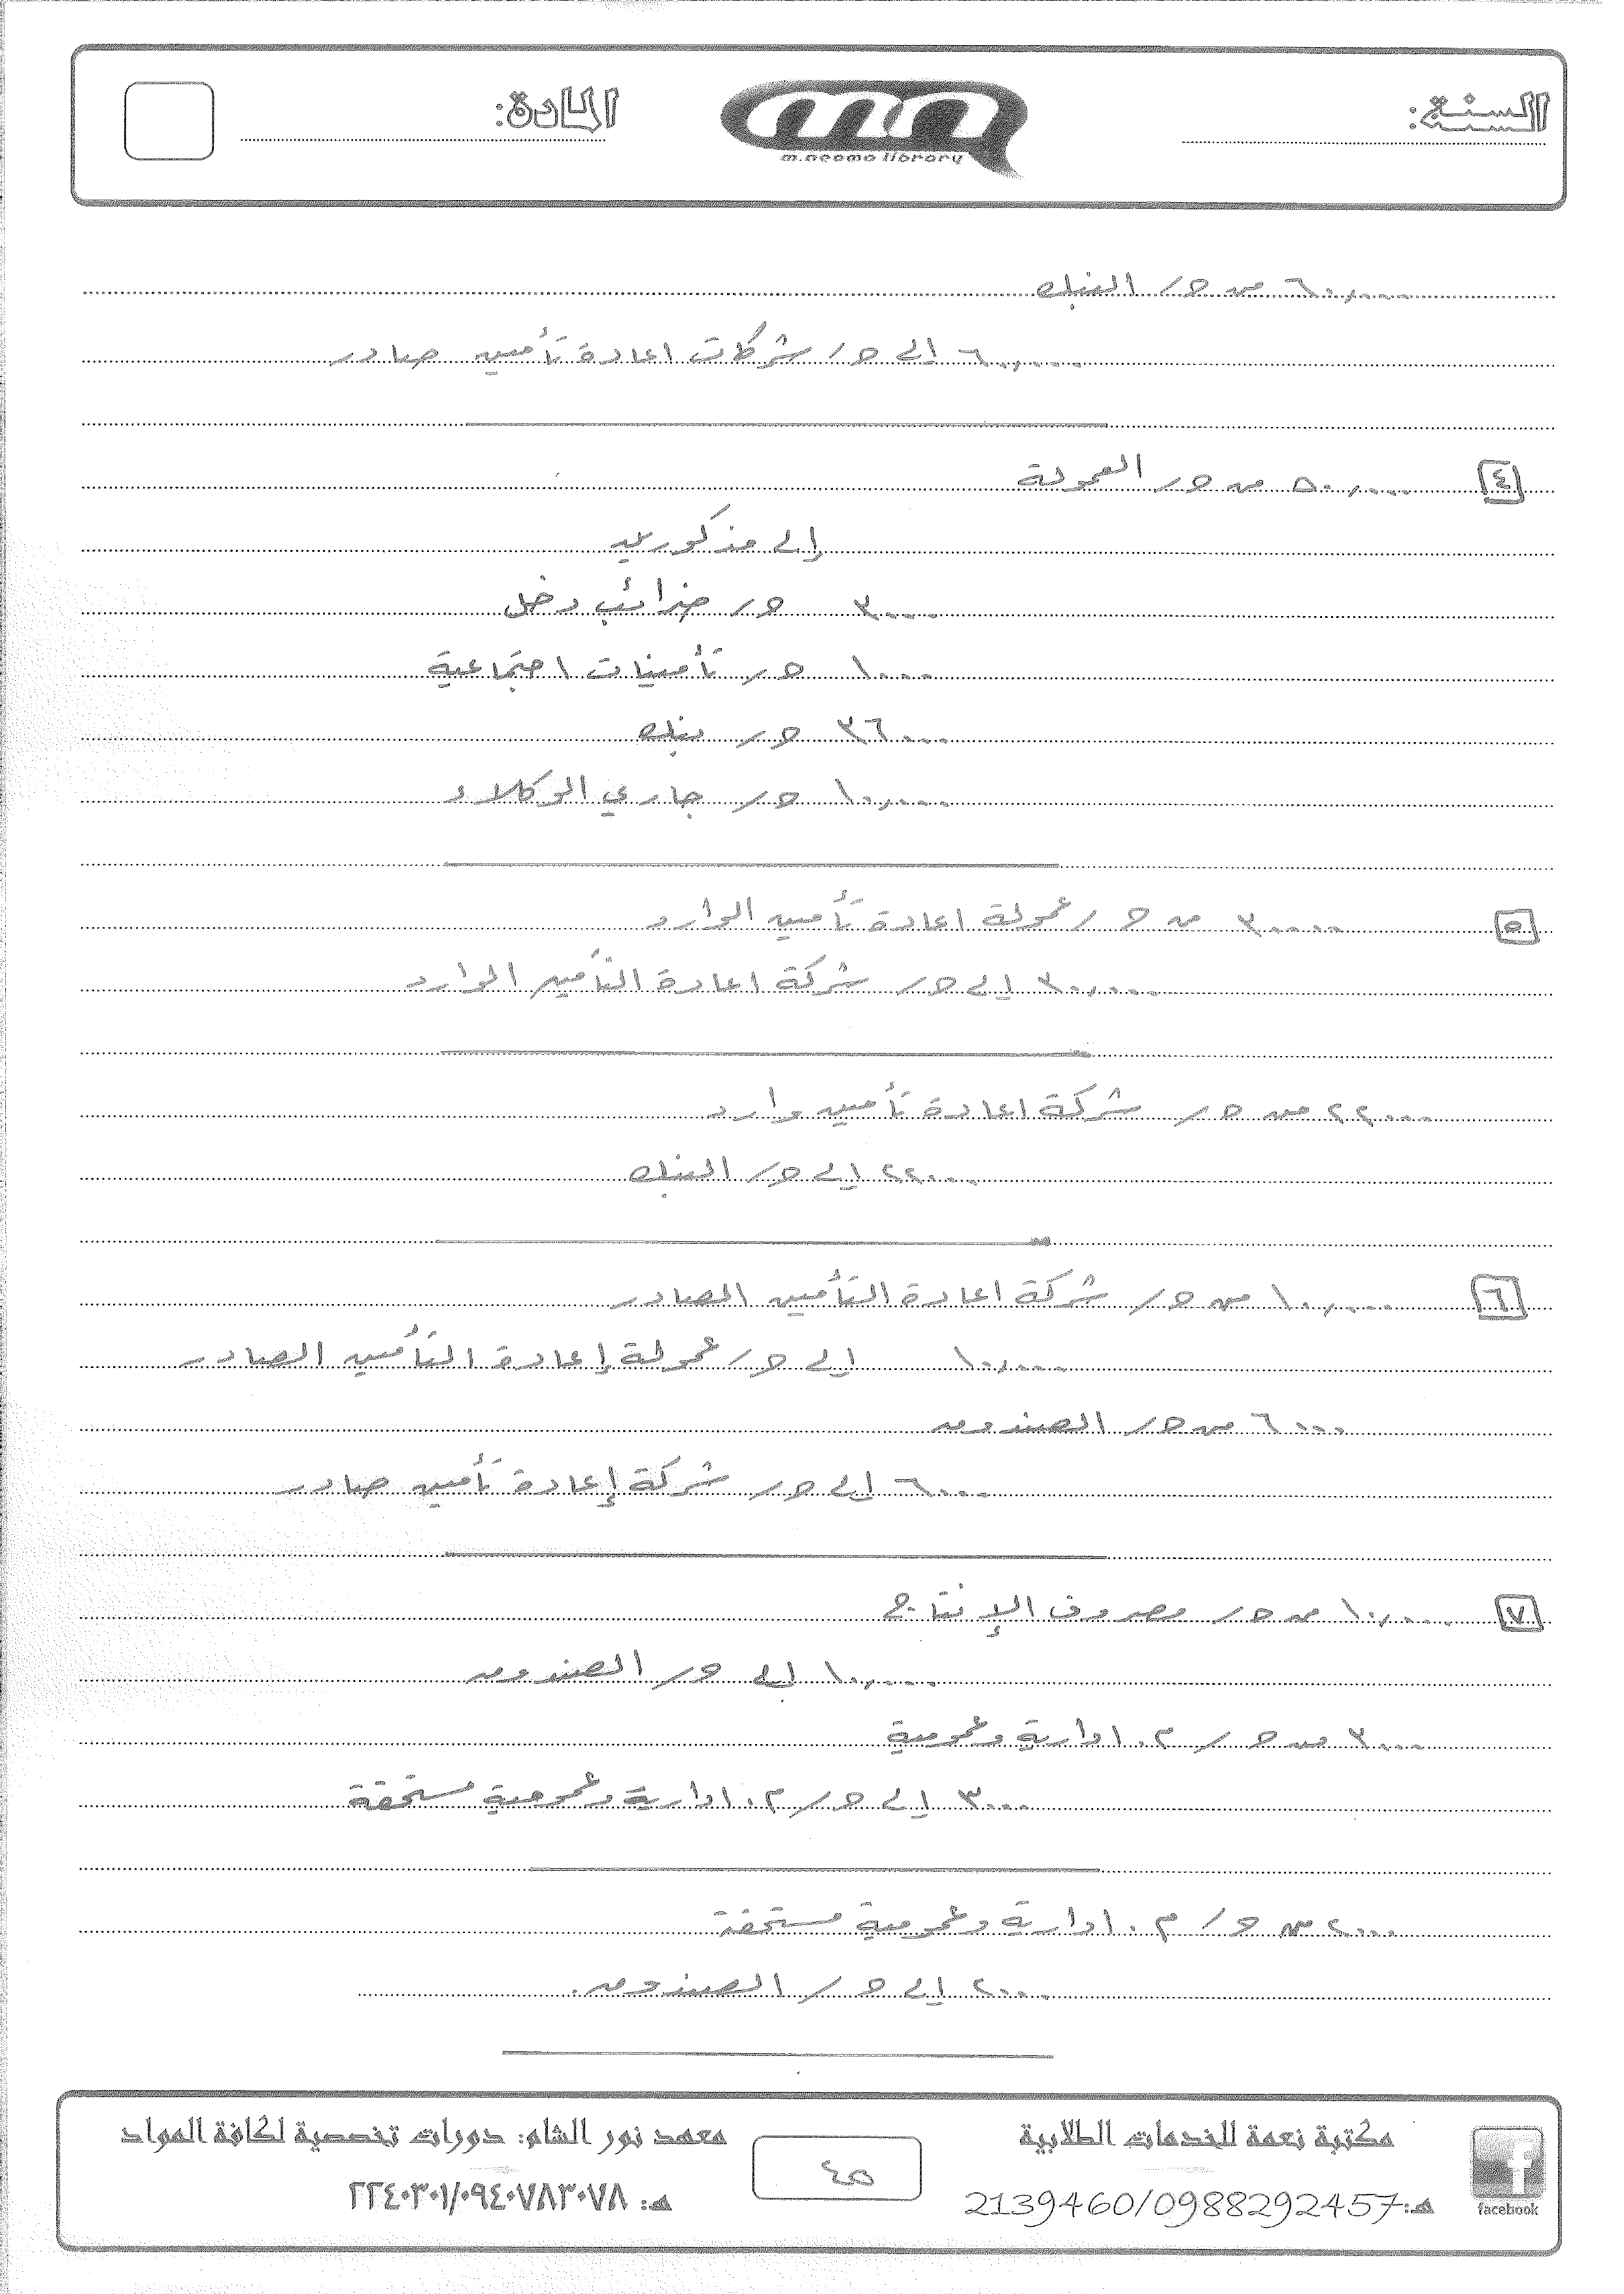 السنة:
mn
m.neoma library
المادة:
٦٠,٠٠٠ من ح/ البنك
٦٠,٠٠٠ الى ح/ شركات اعادة تأمين صادر
٤
٥٠,٠٠٠ من ح/ العمولة
إلى مذكورين
٣٠٠٠ ح/ ضرائب دخل
١٠٠٠ ح/ تأمينات اجتماعية
٣٦٠٠٠ ح/ بنك
١٠,٠٠٠ ح/ جاري الوكلاء
٥
٣٠٠٠٠ من ح/ عمولة اعادة تأمين الوارد
٣٠,٠٠٠ إلى ح/ شركة اعادة التأمين الوارد
٢٢٠٠٠ من ح/ شركة اعادة تأمين وارد
٢٢٠٠٠ إلى ح/ البنك
٦
١٠,٠٠٠ من ح/ شركة اعادة التأمين الصادر
١٠,٠٠٠ إلى ح/ عمولة إعادة التأمين الصادر
٦٠٠٠ من ح/ الصندوق
٦٠٠٠ إلى ح/ شركة إعادة تأمين صادر
٧
١٠,٠٠٠ من ح/ مصروف الإنتاج
١٠,٠٠٠ إلى ح/ الصندوق
٣٠٠٠ من ح/ م. ادارية وعمومية
٣٠٠٠ إلى ح/ م. ادارية وعمومية مستحقة
٢٠٠٠ من ح/ م. ادارية وعمومية مستحقة
٢٠٠٠ إلى ح/ الصندوق.
facebook
مكتبة نعمة للخدمات الطلابية
هـ: 2139460/0988292457
٤٥
معهد نور الشام: دورات تخصصية لكافة المواد
هـ: ٢٢٤٠٣٠١/٠٩٤٠٧٨٣٠٧٨